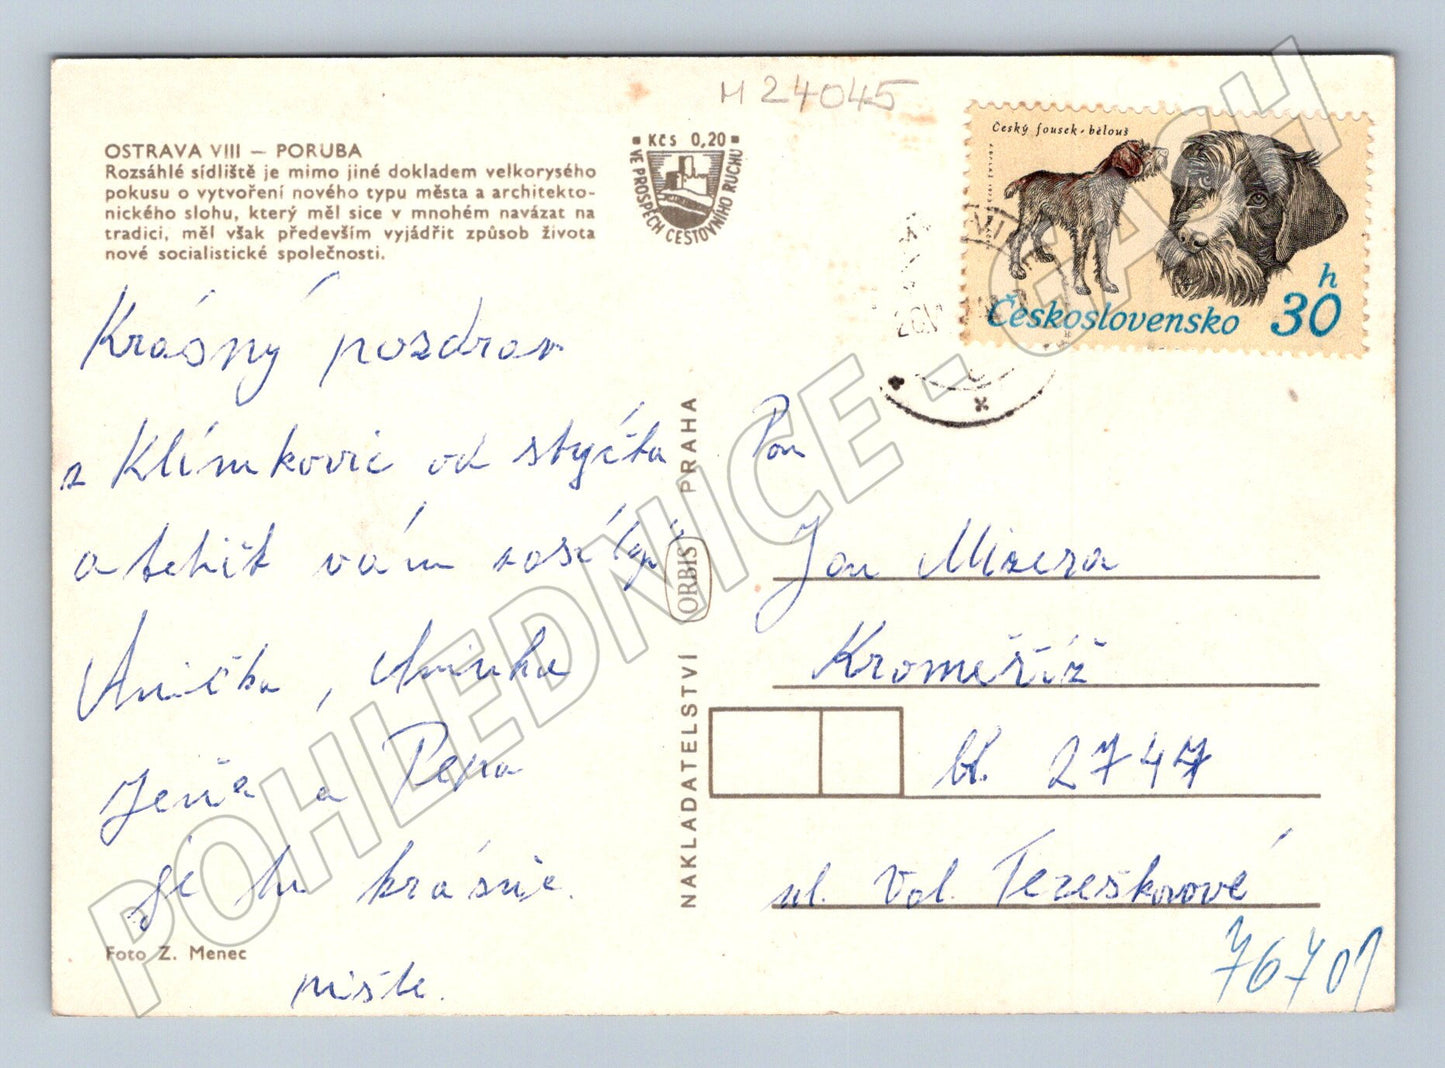 M 24045
OSTRAVA VIII — PORUBA
Rozsáhlé sídliště je mimo jiné dokladem velkorysého
pokusu o vytvoření nového typu města a architekto-
nického slohu, který měl sice v mnohém navázat na
tradici, měl však především vyjádřit způsob života
nové socialistické společnosti.
Kčs 0,20
VE PROSPĚCH CESTOVNÍHO RUCHU
Český fousek - bělouš
Československo 30 h
Krásný pozdrav
z Klímkovic od styčka
a tetiček vám
Anička, Aninka
a Pepa
je tu krásnie.
Foto Z. Menec
NAKLADATELSTVÍ ORBIS PRAHA
Pan
Jan Mizera
Kroměříž
bl. 2747
ul. Val. Tereškovové
76701
POHLEDNICE - CASH